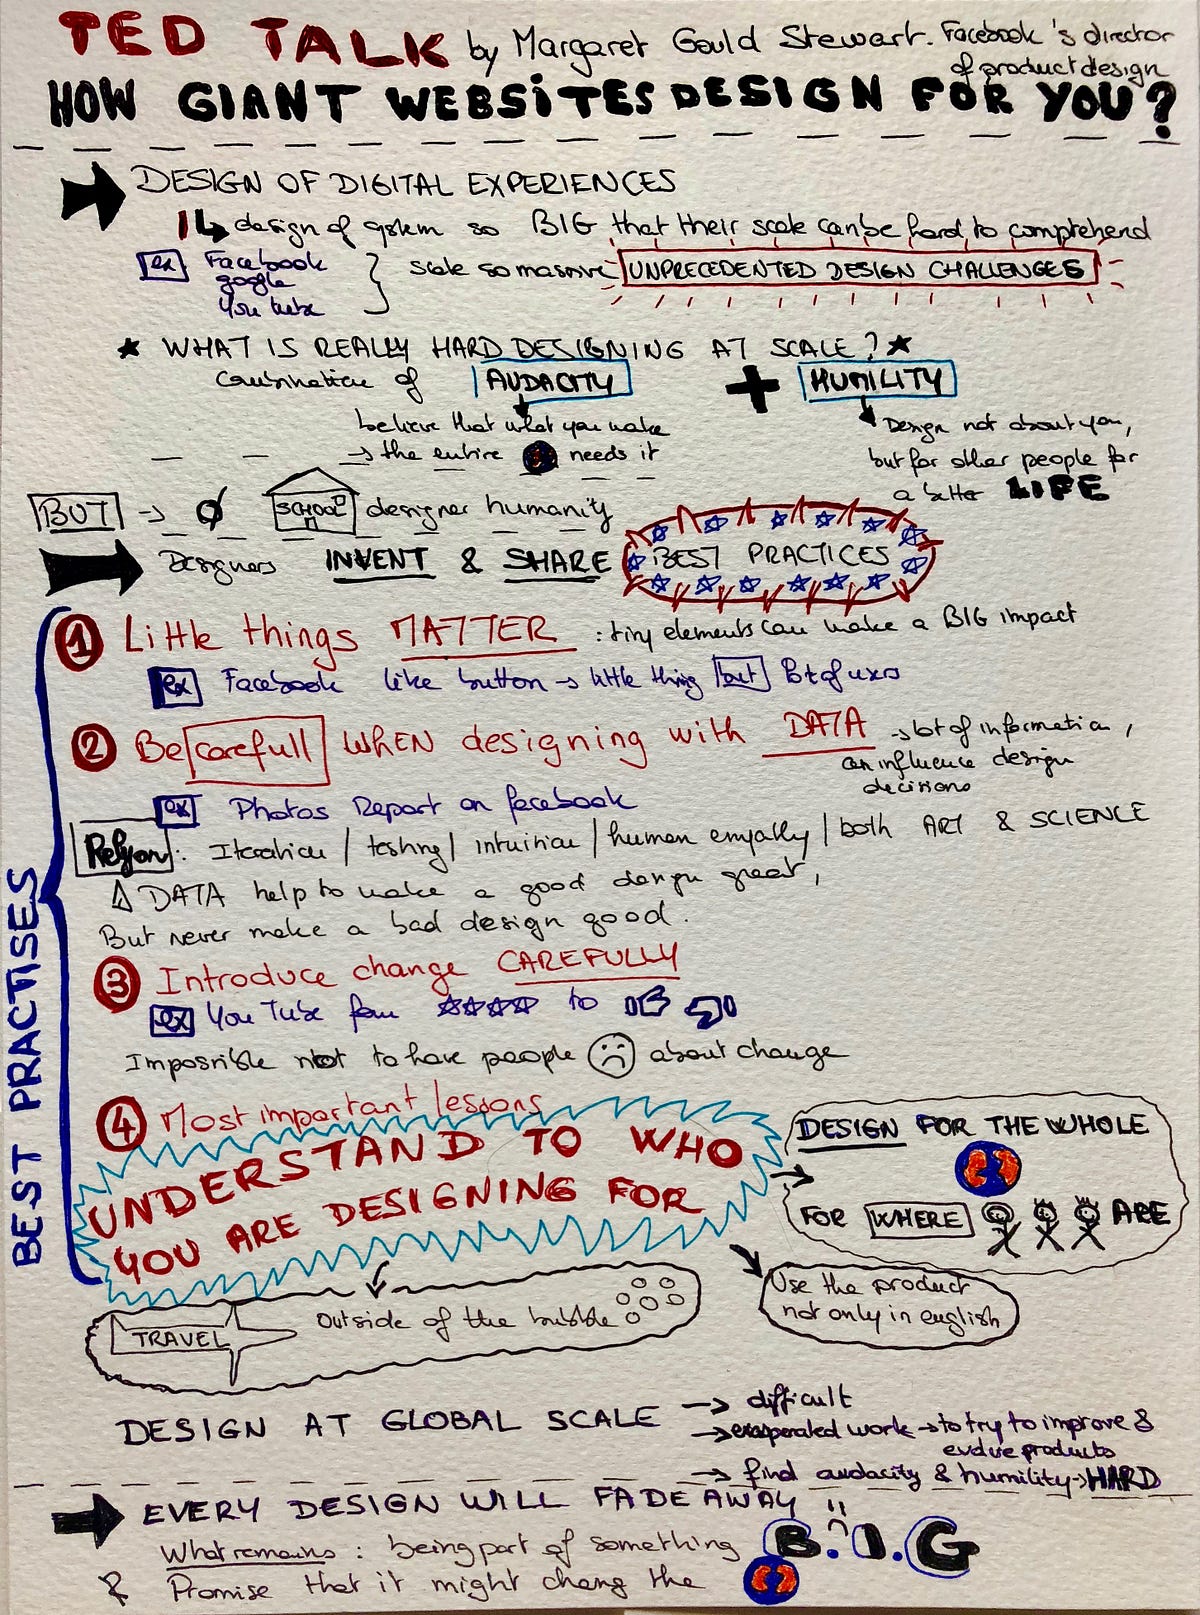 TED TALK by Margaret Gould Stewart. Facebook's director
of product design
HOW GIANT WEBSITES DESIGN FOR YOU?
DESIGN OF DIGITAL EXPERIENCES
design of system so BIG that their scale can be hard to comprehend
ex Facebook
google
You tube
scale so massive UNPRECEDENTED DESIGN CHALLENGES
WHAT IS REALLY HARD DESIGNING AT SCALE?
Combination of AUDACITY + HUMILITY
believe that what you make
→ the entire needs it
Design not about you,
but for other people for
a better LIFE
BUT → Ø SCHOOL designer humanity
Designers INVENT & SHARE BEST PRACTICES
BEST PRACTISES
1 Little things MATTER : tiny elements can make a BIG impact
ex Facebook like button → little thing but lot of uses
2 Be carefull WHEN designing with DATA → lot of information,
can influence design
decisions
ex Photos Report on facebook
Rely on: Iteration / testing / intuition / human empathy / both ART & SCIENCE
DATA help to make a good design great,
But never make a bad design good.
3 Introduce change CAREFULLY
ex YouTube from to
Impossible not to have people about change
4 Most important lessons
UNDERSTAND TO WHO
YOU ARE DESIGNING FOR
→ DESIGN FOR THE WHOLE
FOR WHERE ARE
TRAVEL Outside of the bubble
Use the product
not only in english
DESIGN AT GLOBAL SCALE → difficult
→ work → to try to improve &
evolve products
→ find audacity & humility → HARD
EVERY DESIGN WILL FADE AWAY !!
What remains : being part of something B.I.G
& Promise that it might change the